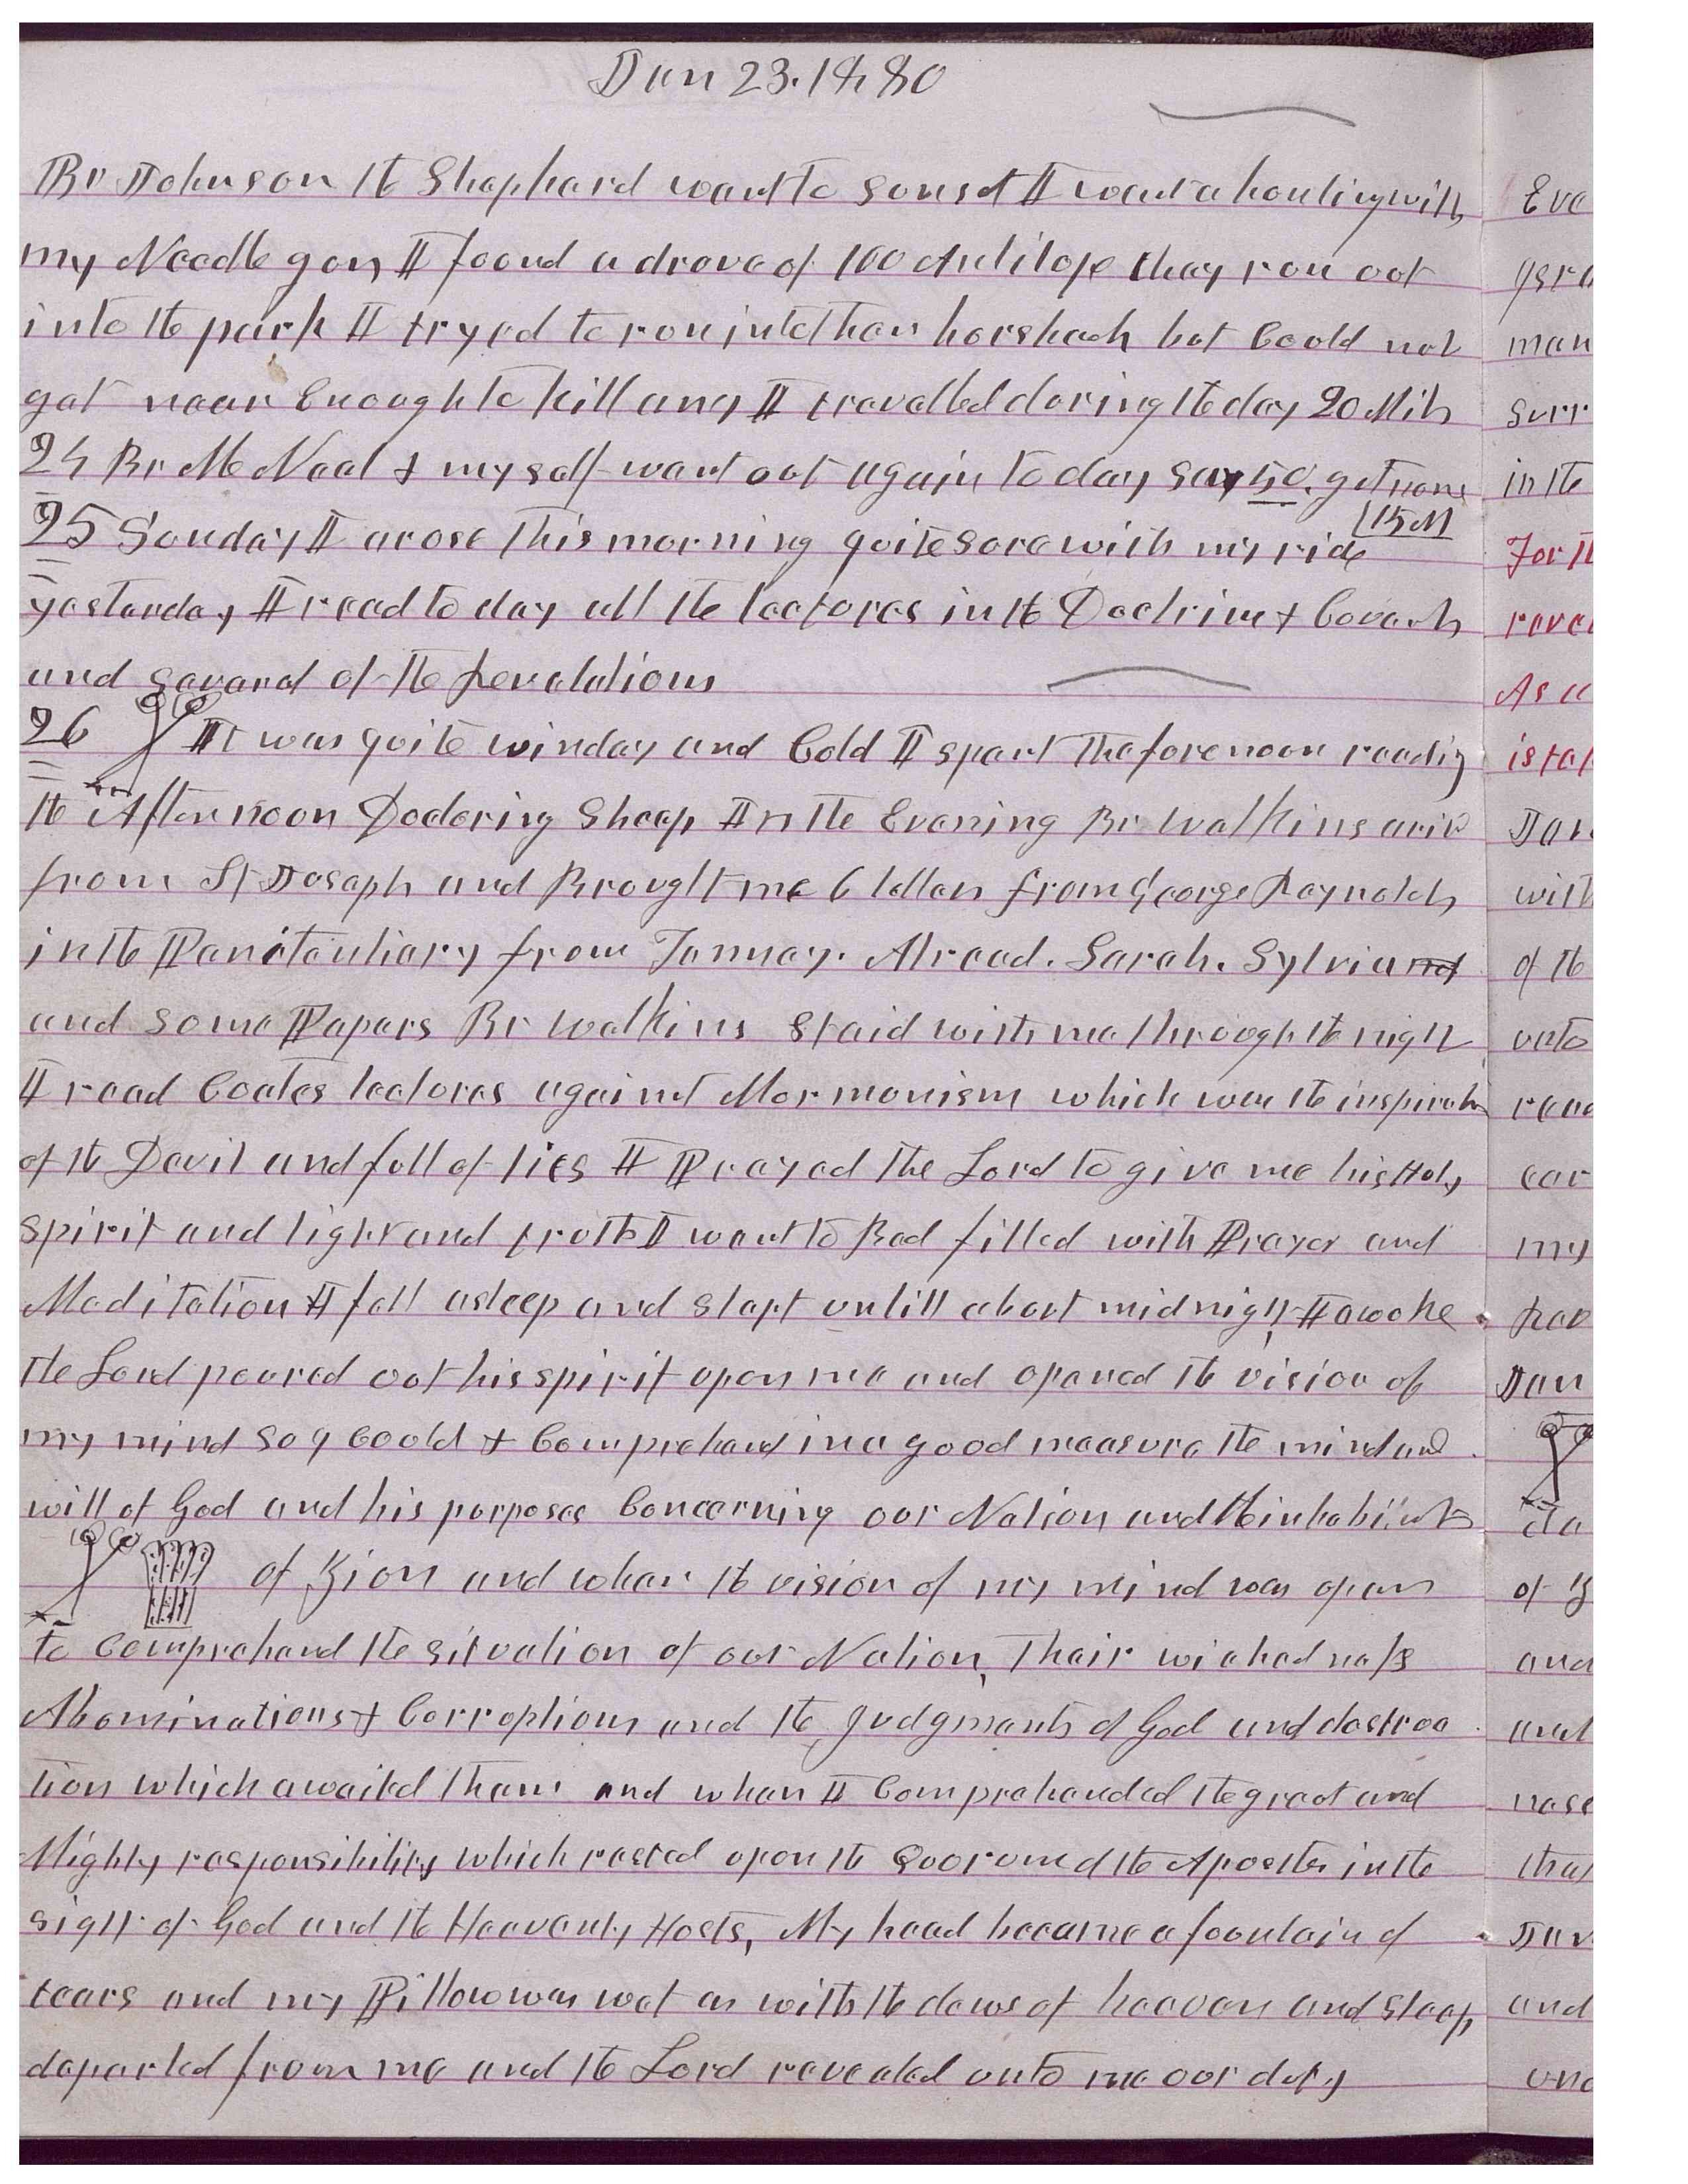 Jan 23. 1880
Br Johnson the Shephard went to sonset I went a houting with
my Needle gon, I foond a drove of 100 Antilope they ron oot
into the park I tryed to ron into them horsback bot Coold not
get near Enough to kill any I travelled doring the day 20 Mils
24 Br McNeal & myself went oot again to day saw 50. got none
15 M
25 Sonday I arose this morning qoite sore with my ride
yesterday I read to day all the lectores in the Doctrine & Covants
and several of the Revelations
26 It was quite winday and Cold I spent the forenoon readig
the Afternoon Doctoring Sheep In the Evening Br Watkins ariv
from St Joseph and Brought me 6 letters from George Reynolds
in the Penitentiary from Tommey. Alread. Sarah. Sylvia
and some Papers Br Watkins staid with me through the night
I read Coales lectores against Mormonism which was the inspiratn
of the Devil and foll of lies I Prayed the Lord to give me his Holy
spirit and light and troth I went to Bed filled with Prayer and
Meditation I fell asleep and slept ontill about midnight I awoke
the Lord poured oot his spirit opon me and opened the vision of
my mind so I Coold & Comprehend in a good measure the mind and
will of God and his porposes Concerning oor Nation and the inhabitants
of Zion and when the vision of my mind was open
to Comprehend the sitoation of oor Nation, their wickedness
Abominations & Corroptions and the judgments of God and destroc
tion which awaited them and when I Comprehended the great and
Mighty responsibility which rested opon the Qoorom of the Apostles in the
sight of God and the Heavenly Hosts, My head became a foontain of
tears and my Pillow was wet as with the dews of heaven and sleep
departed from me and the Lord revealed onto me oor doty